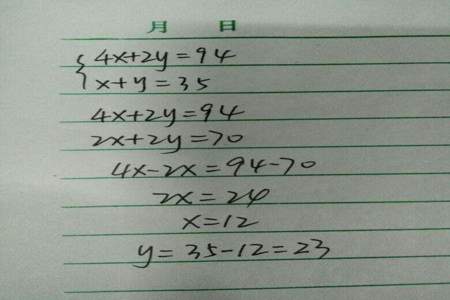 月 日
{4x+2y=94
x+y=35
4x+2y=94
2x+2y=70
4x-2x=94-70
2x=24
x=12
y=35-12=23